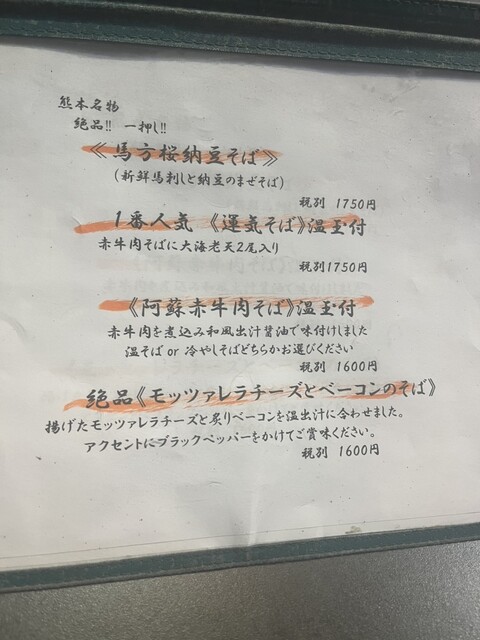 熊本名物
絶品!! 一押し!!
《馬方桜納豆そば》
(新鮮馬刺しと納豆のまぜそば)
税別 1750円
1番人気 《運気そば》温玉付
赤牛肉そばに大海老天2尾入り
税別1750円
《阿蘇赤牛肉そば》温玉付
赤牛肉を煮込み和風出汁醤油で味付けしました
温そば or 冷やしそばどちらかお選びください
税別 1600円
絶品《モッツァレラチーズとベーコンのそば》
揚げたモッツァレラチーズと炙りベーコンを温出汁に合わせました。
アクセントにブラックペッパーをかけてご賞味ください。
税別 1600円